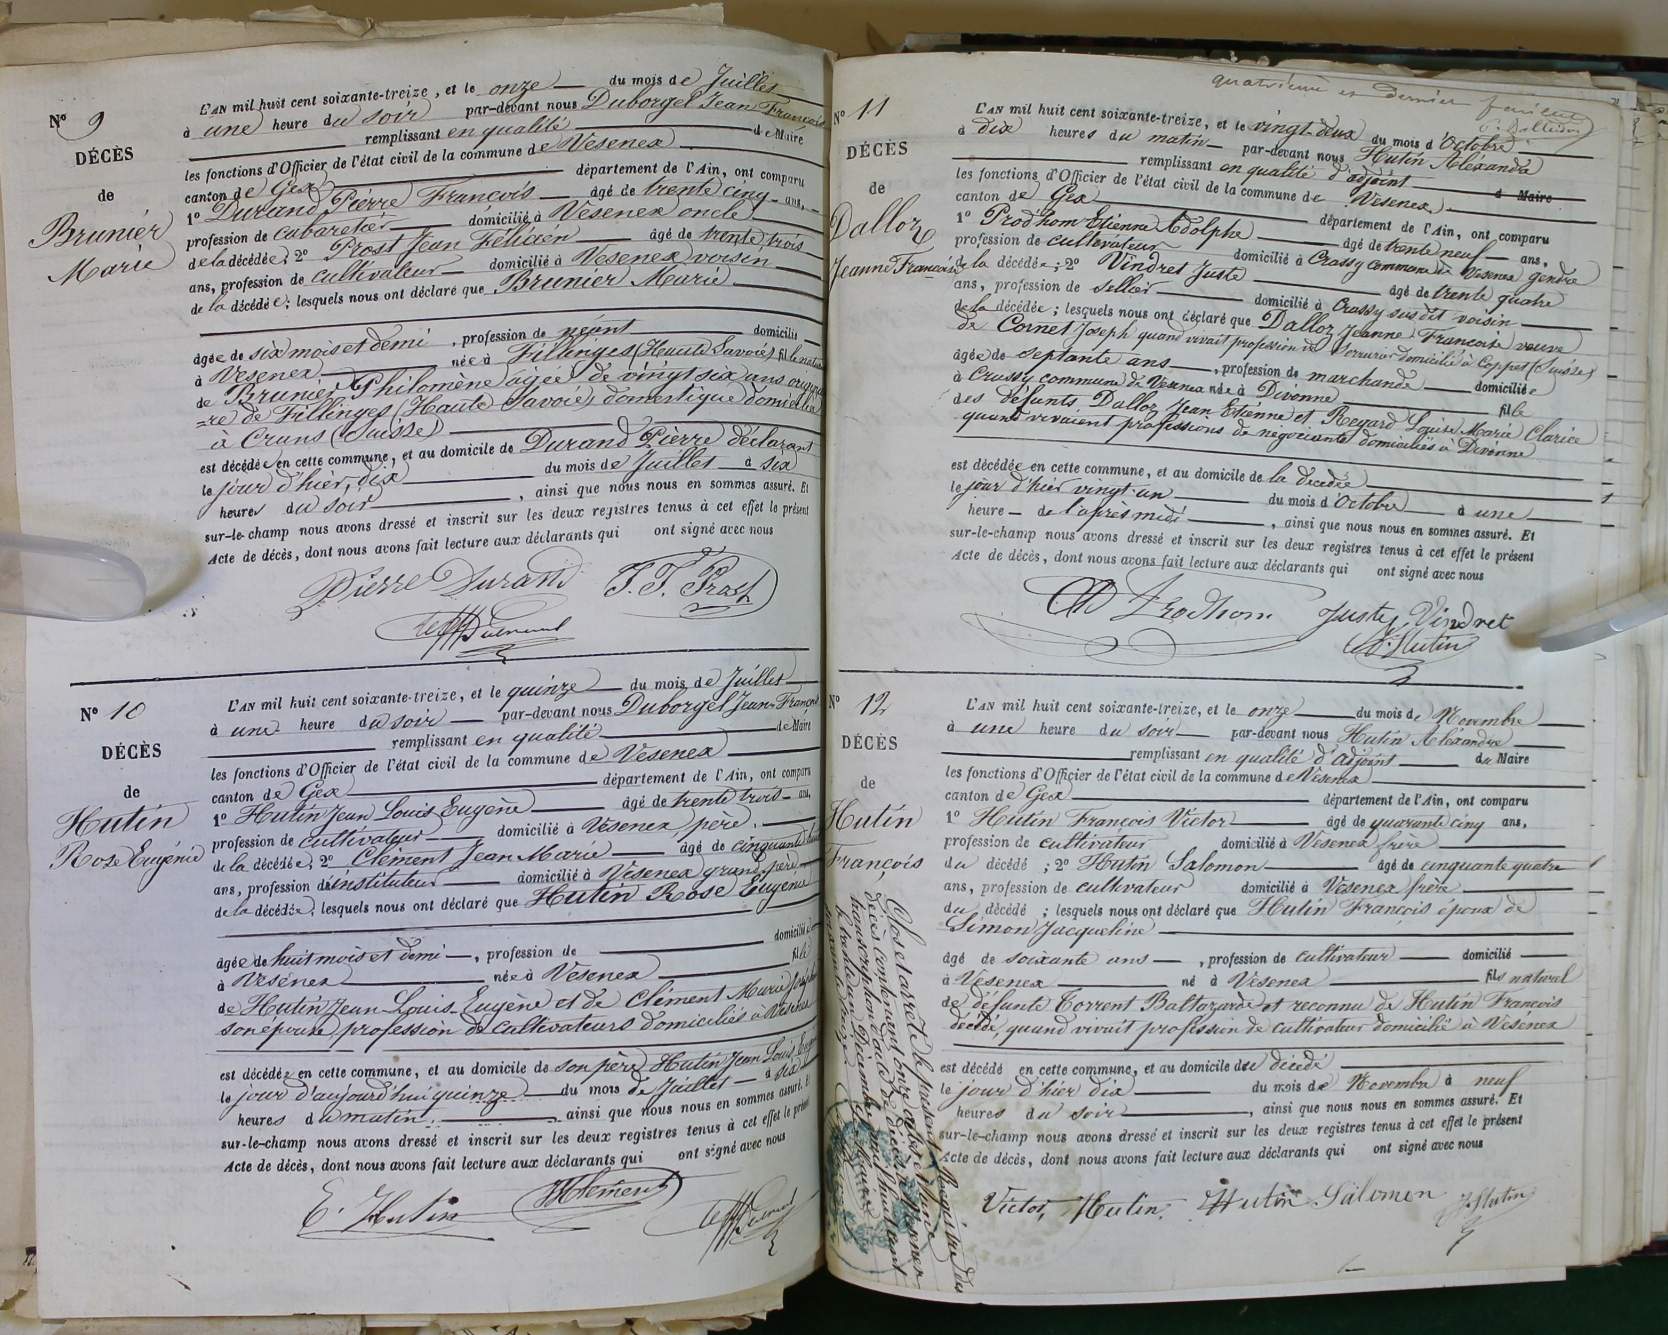 Nº 9
DÉCÈS
de
Brunier
Marie
L'AN mil huit cent soixante-treize, et le onze du mois de Juillet
à une heure du soir par-devant nous Duborgel Jean François
remplissant en qualité de Maire
les fonctions d'Officier de l'état civil de la commune de Vesenex
canton de Gex département de l'Ain, ont comparu
1º Durand Pierre François âgé de trente cinq ans,
profession de cabaretier domicilié à Vesenex oncle
de la décédée; 2º Prost Jean Félicien âgé de trente trois
ans, profession de cultivateur domicilié à Vesenex voisin
de la décédée; lesquels nous ont déclaré que Brunier Marie
âgée de six mois et demi, profession de néant domicilié
à Vesenex née à Fillinges (Haute Savoie) fille
de Brunier Philomène âgée de vingt six ans
=re de Fillinges (Haute Savoie) domestique
à Crans (Suisse)
est décédée en cette commune, et au domicile de Durand Pierre déclarant
le jour d'hier, dix du mois de Juillet à six
heures du soir, ainsi que nous nous en sommes assuré. Et
sur-le-champ nous avons dressé et inscrit sur les deux registres tenus à cet effet le présent
Acte de décès, dont nous avons fait lecture aux déclarants qui ont signé avec nous
Pierre Durand J. F. Prost
Nº 10
DÉCÈS
de
Hutin
Rose Eugénie
L'AN mil huit cent soixante-treize, et le quinze du mois de Juillet
à une heure du soir par-devant nous Duborgel Jean François
remplissant en qualité de Maire
les fonctions d'Officier de l'état civil de la commune de Vesenex
canton de Gex département de l'Ain, ont comparu
1º Hutin Jean Louis Eugène âgé de trente trois ans,
profession de cultivateur domicilié à Vesenex, père
de la décédée; 2º Clément Jean Marie âgé de cinquante
ans, profession d'instituteur domicilié à Vesenex grand père
de la décédée; lesquels nous ont déclaré que Hutin Rose Eugénie
âgée de huit mois et demi, profession de domicilié
à Vesenex née à Vesenex fille
de Hutin Jean Louis Eugène et de Clément Marie
son épouse, profession de cultivateurs domiciliés à Vesenex
est décédée en cette commune, et au domicile de son père Hutin Jean Louis
le jour d'aujourd'hui quinze du mois de Juillet à six
heures du matin, ainsi que nous nous en sommes assuré. Et
sur-le-champ nous avons dressé et inscrit sur les deux registres tenus à cet effet le présent
Acte de décès, dont nous avons fait lecture aux déclarants qui ont signé avec nous
E. Hutin Clément
quatrième et dernier feuillet
Nº 11
DÉCÈS
de
Dalloz
Jeanne Françoise
L'AN mil huit cent soixante-treize, et le vingt-deux du mois d'Octobre
à dix heures du matin par-devant nous Hutin Alexandre
remplissant en qualité d'adjoint d Maire
les fonctions d'Officier de l'état civil de la commune de Vesenex
canton de Gex département de l'Ain, ont comparu
1º Prodhom Etienne Adolphe âgé de trente neuf ans,
profession de cultivateur domicilié à Crassy commune de Vesenex gendre
de la décédée; 2º Vindret Juste âgé de trente quatre
ans, profession de sellier domicilié à Crassy susdit voisin
de la décédée; lesquels nous ont déclaré que Dalloz Jeanne Françoise veuve
de Cornet Joseph quand vivait profession de serrurier domicilié à Coppet (Suisse)
âgée de septante ans, profession de marchande domiciliée
à Crassy commune de Vesenex née à Divonne fille
des défunts Dalloz Jean Etienne et Regard Louise Marie Clarice
quand vivaient professions de négociants domiciliés à Divonne
est décédée en cette commune, et au domicile de la décédée
le jour d'hier vingt-un du mois d'Octobre à une
heure de l'après midi, ainsi que nous nous en sommes assuré. Et
sur-le-champ nous avons dressé et inscrit sur les deux registres tenus à cet effet le présent
Acte de décès, dont nous avons fait lecture aux déclarants qui ont signé avec nous
Ad Prodhom Juste Vindret
Hutin
Nº 12
DÉCÈS
de
Hutin
François
L'AN mil huit cent soixante-treize, et le onze du mois de Novembre
à une heure du soir par-devant nous Hutin Alexandre
remplissant en qualité d'adjoint du Maire
les fonctions d'Officier de l'état civil de la commune de Vesenex
canton de Gex département de l'Ain, ont comparu
1º Hutin François Victor âgé de quarante cinq ans,
profession de cultivateur domicilié à Vesenex frère
du décédé; 2º Hutin Salomon âgé de cinquante quatre
ans, profession de cultivateur domicilié à Vesenex frère
du décédé; lesquels nous ont déclaré que Hutin François époux de
Simon Jacqueline
âgé de soixante ans, profession de cultivateur domicilié
à Vesenex né à Vesenex fils naturel
de défunte Torrent Baltazarde et reconnu de Hutin François
décédé, quand vivait profession de cultivateur domicilié à Vesenex
est décédé en cette commune, et au domicile du décédé
le jour d'hier dix du mois de Novembre à neuf
heures du soir, ainsi que nous nous en sommes assuré. Et
sur-le-champ nous avons dressé et inscrit sur les deux registres tenus à cet effet le présent
Acte de décès, dont nous avons fait lecture aux déclarants qui ont signé avec nous
Victor Hutin Hutin Salomon Hutin
Clos et arrêté le présent Registre des
décès contenant